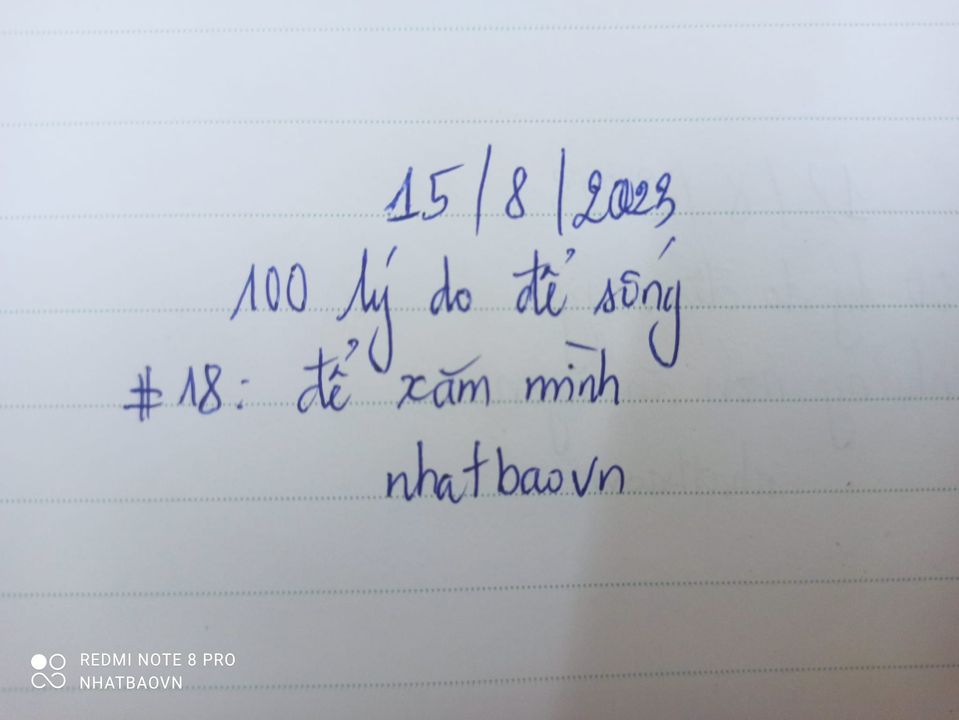 15/8/2023
100 lý do để sống
#18: để xăm mình
nhatbaovn
REDMI NOTE 8 PRO
NHATBAOVN